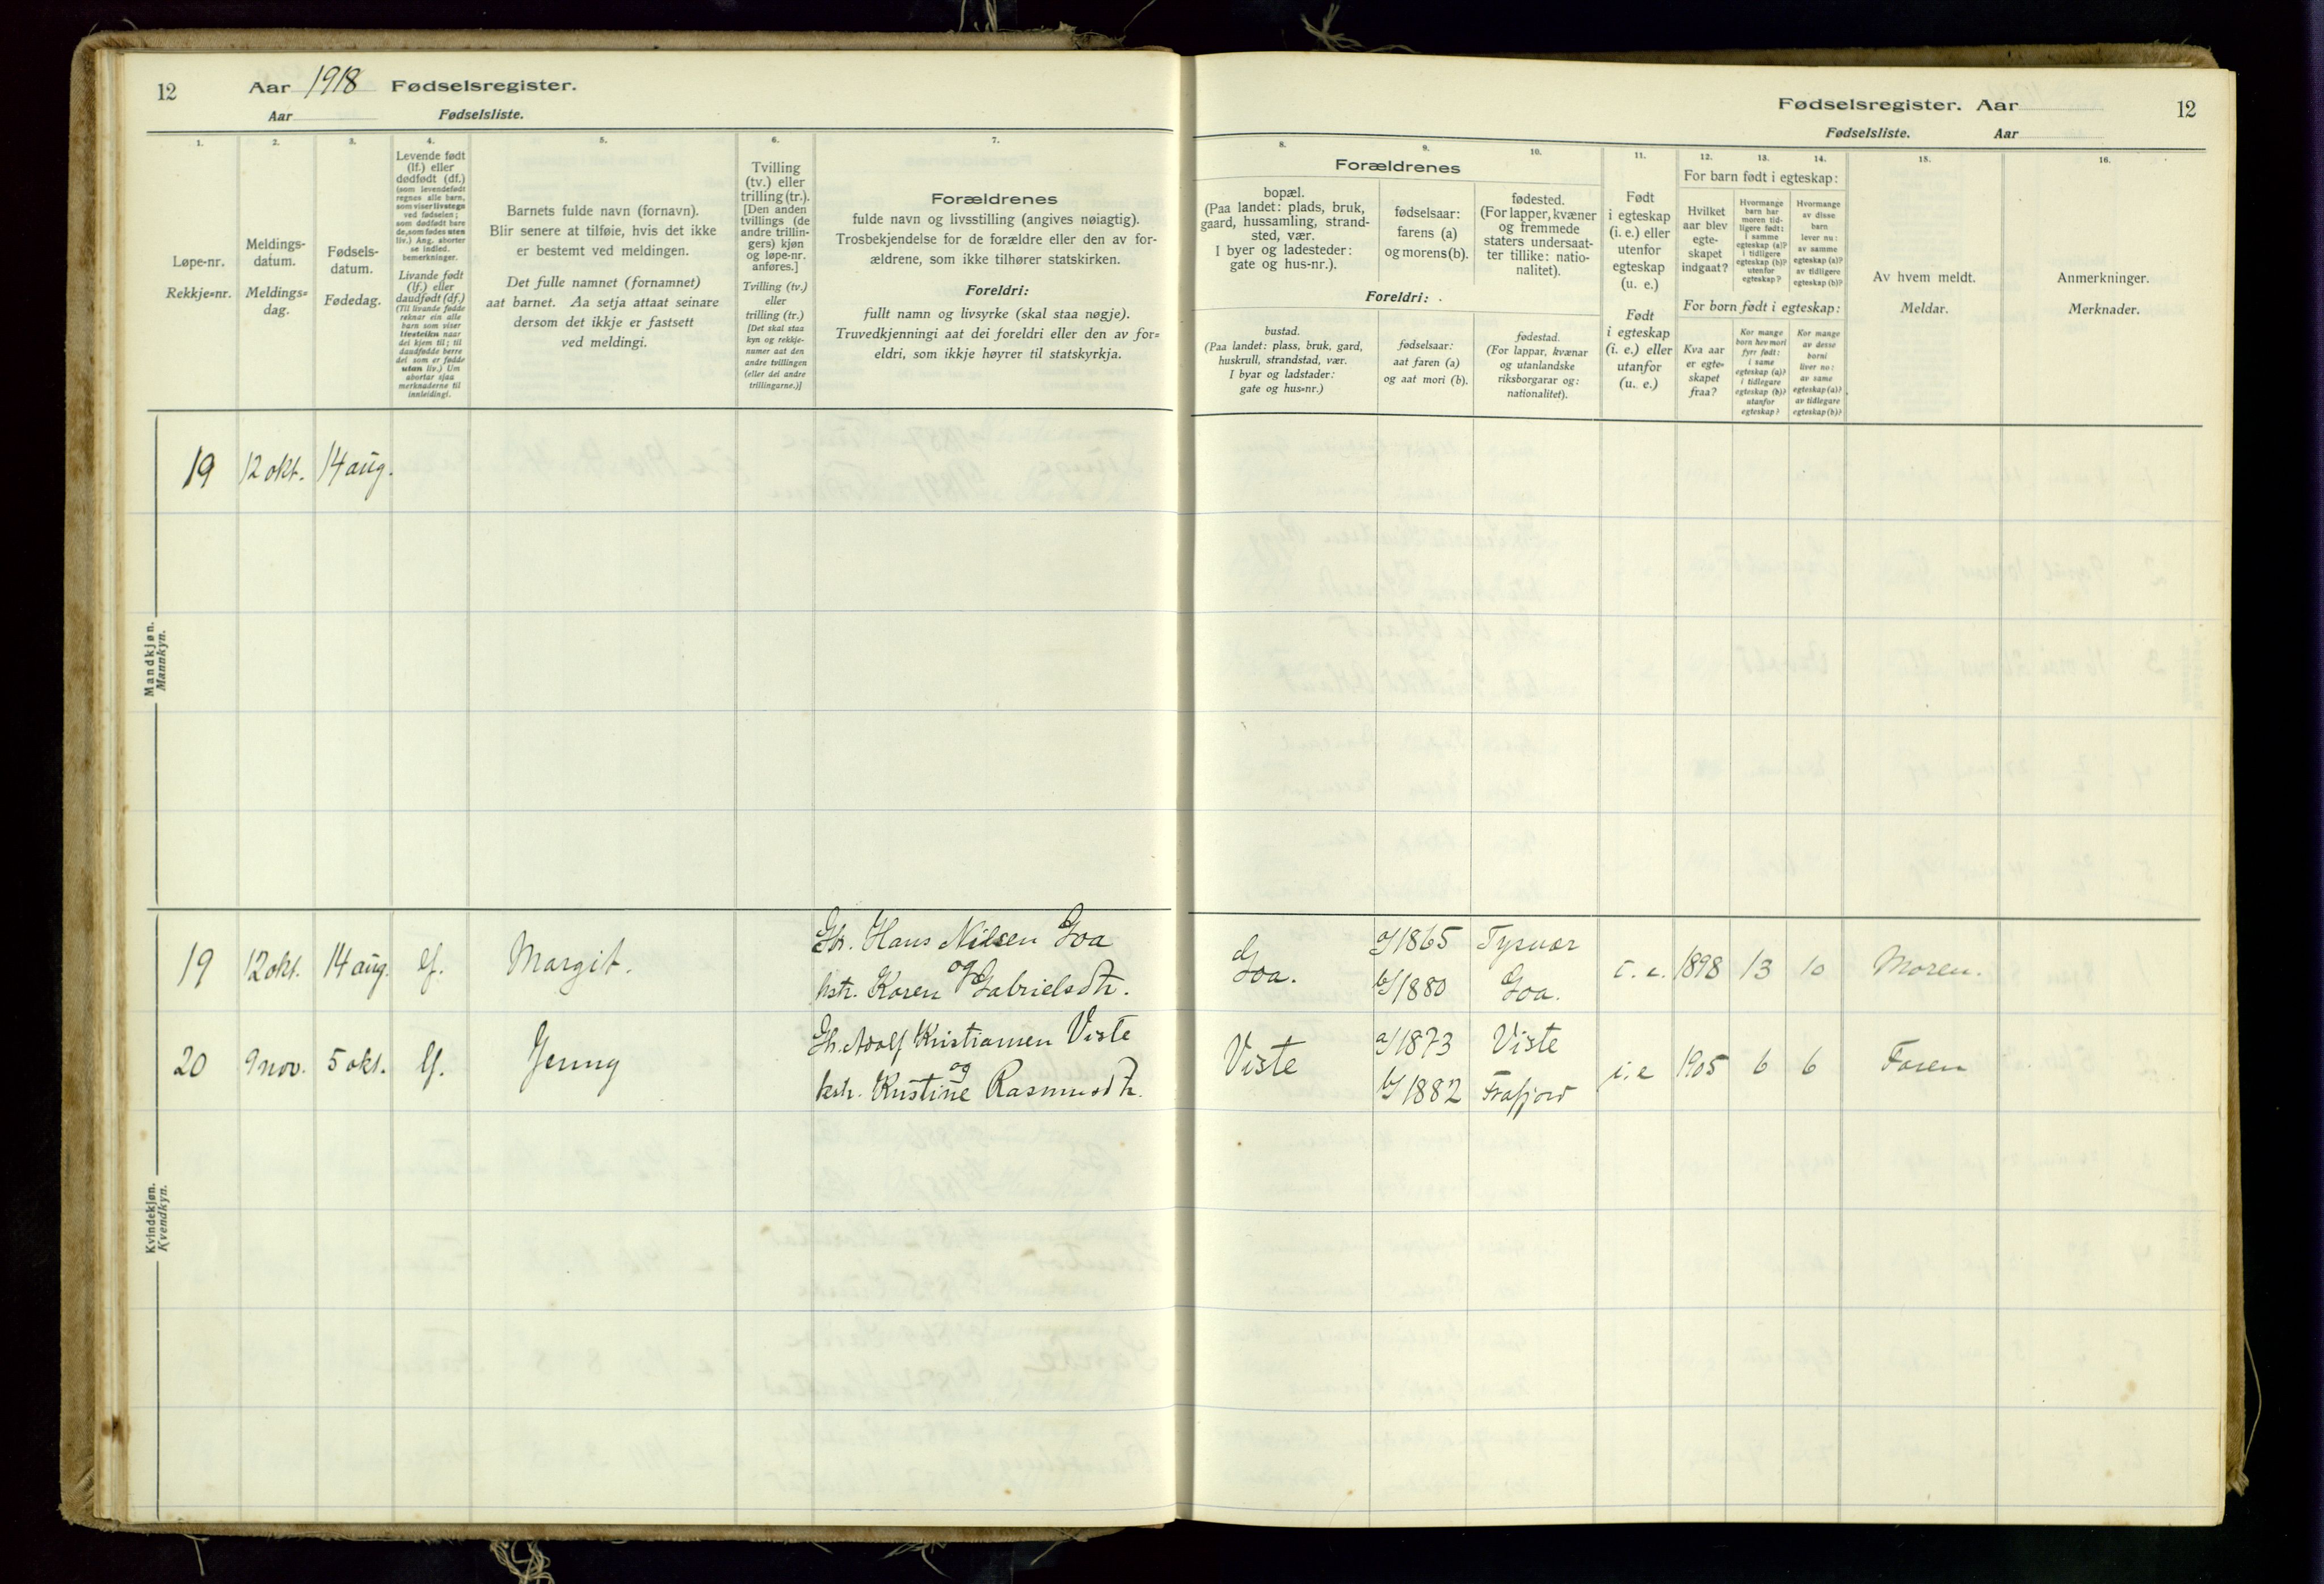 12 Aar 1918 Fødselsregister.
Aar Fødselsliste.
1.
2.
3.
4.
5.
6.
7.
Løpe-nr.
Rekkje=nr.
Meldings-
datum.
Meldings=
dag.
Fødsels-
datum.
Fødedag.
Levende født
(lf.) eller
dødfødt (df.)
(som levendefødt
regnes alle barn,
som viser livstegn
ved fødselen;
som dødfødt bare
de, som fødes uten
liv.) Ang. aborter
se indled.
bemerkninger.
Livande født
(lf.) eller
daudfødt (df.)
(Til livande fødde
reknar ein alle
barn som viser
livsteikn naar
dei kjem til; til
daudfødde berre
dei som er fødde
utan liv.) Um
abortar sjaa
merknaderne til
innleidingi.
Barnets fulde navn (fornavn).
Blir senere at tilføie, hvis det ikke
er bestemt ved meldingen.
Det fulle namnet (fornamnet)
aat barnet. Aa setja attaat seinare
dersom det ikkje er fastsett
ved meldingi.
Tvilling
(tv.) eller
trilling (tr.).
[Den anden
tvillings (de
andre trillin-
gers) kjøn
og løpe-nr.
anføres.]
Tvilling (tv.)
eller
trilling (tr.)
[Det skal staa
kyn og rekkje-
numer aat den
andre tvillingen
(eller dei andre
trillingarne.)]
Forældrenes
fulde navn og livsstilling (angives nøiagtig).
Trosbekjendelse for de forældre eller den av for-
ældrene, som ikke tilhører statskirken.
Foreldri:
fullt namn og livsyrke (skal staa nøgje).
Truvedkjenningi aat dei foreldri eller den av for=
eldri, som ikkje høyrer til statskyrkja.
Mandkjøn.
Mannkyn.
19 12 okt. 14 aug.
Kvindekjøn.
Kvendkyn.
19 12 okt. 14 aug. lf. Margit.
Gbr. Hans Nilsen Goa
og
hstr. Karen Gabrielsdtr.
20 9 nov. 5 okt. lf. Jenny
Gbr. Adolf Kristiansen Viste
og
hstr. Kristine Rasmusdtr.
Fødselsregister. Aar 12
Fødselsliste. Aar
8.
9.
10.
11.
12.
13.
14.
15.
16.
Forældrenes
bopæl.
(Paa landet: plads, bruk,
gaard, hussamling, strand-
sted, vær.
I byer og ladesteder:
gate og hus-nr.).
fødselsaar:
farens (a)
og morens (b).
fødested.
(For lapper, kvæner
og fremmede
staters undersaat-
ter tillike: natio-
nalitet).
Foreldri:
bustad.
(Paa landet: plass, bruk, gard,
huskrull, strandstad, vær.
I byar og ladstader:
gate og hus=nr.)
fødselsaar:
aat faren (a)
og aat mori (b).
fødestad.
(For lappar, kvænar
og utanlandske
riksborgarar og:
nationalitet).
Født
i egteskap
(i. e.) eller
utenfor
egteskap
(u. e.)
Født
i egteskap
(i. e.) eller
utanfor
(u. e.)
For barn født i egteskap:
Hvilket
aar blev
egte-
skapet
indgaat?
Hvormange
barn har
moren tid-
ligere født:
i samme
egteskap (a)?
i tidligere
egteskap (b)?
utenfor
egteskap?
Hvormange
av disse
barn
lever nu:
av samme
egteskap (a)?
av tidligere
egteskap (b)?
For born født i egteskap:
Kva aar
er egte=
skapet
fraa?
Kor mange
born hev mori
fyrr født:
i same
egteskap (a)?
i tidlegare
egteskap (b)?
utanfor
egteskap?
Kor mange
av desse
borni
liver no:
av same
egteskap (a)?
av tidlegare
egteskap (b)?
Av hvem meldt.
Meldar.
Anmerkninger.
Merknader.
Goa. a/1865 Tysvær
b/1880 Goa.
i. e. 1898 13 10 Moren.
Viste a/1873 Viste
b/1882 Frafjord
i. e 1905 6 6 Faren